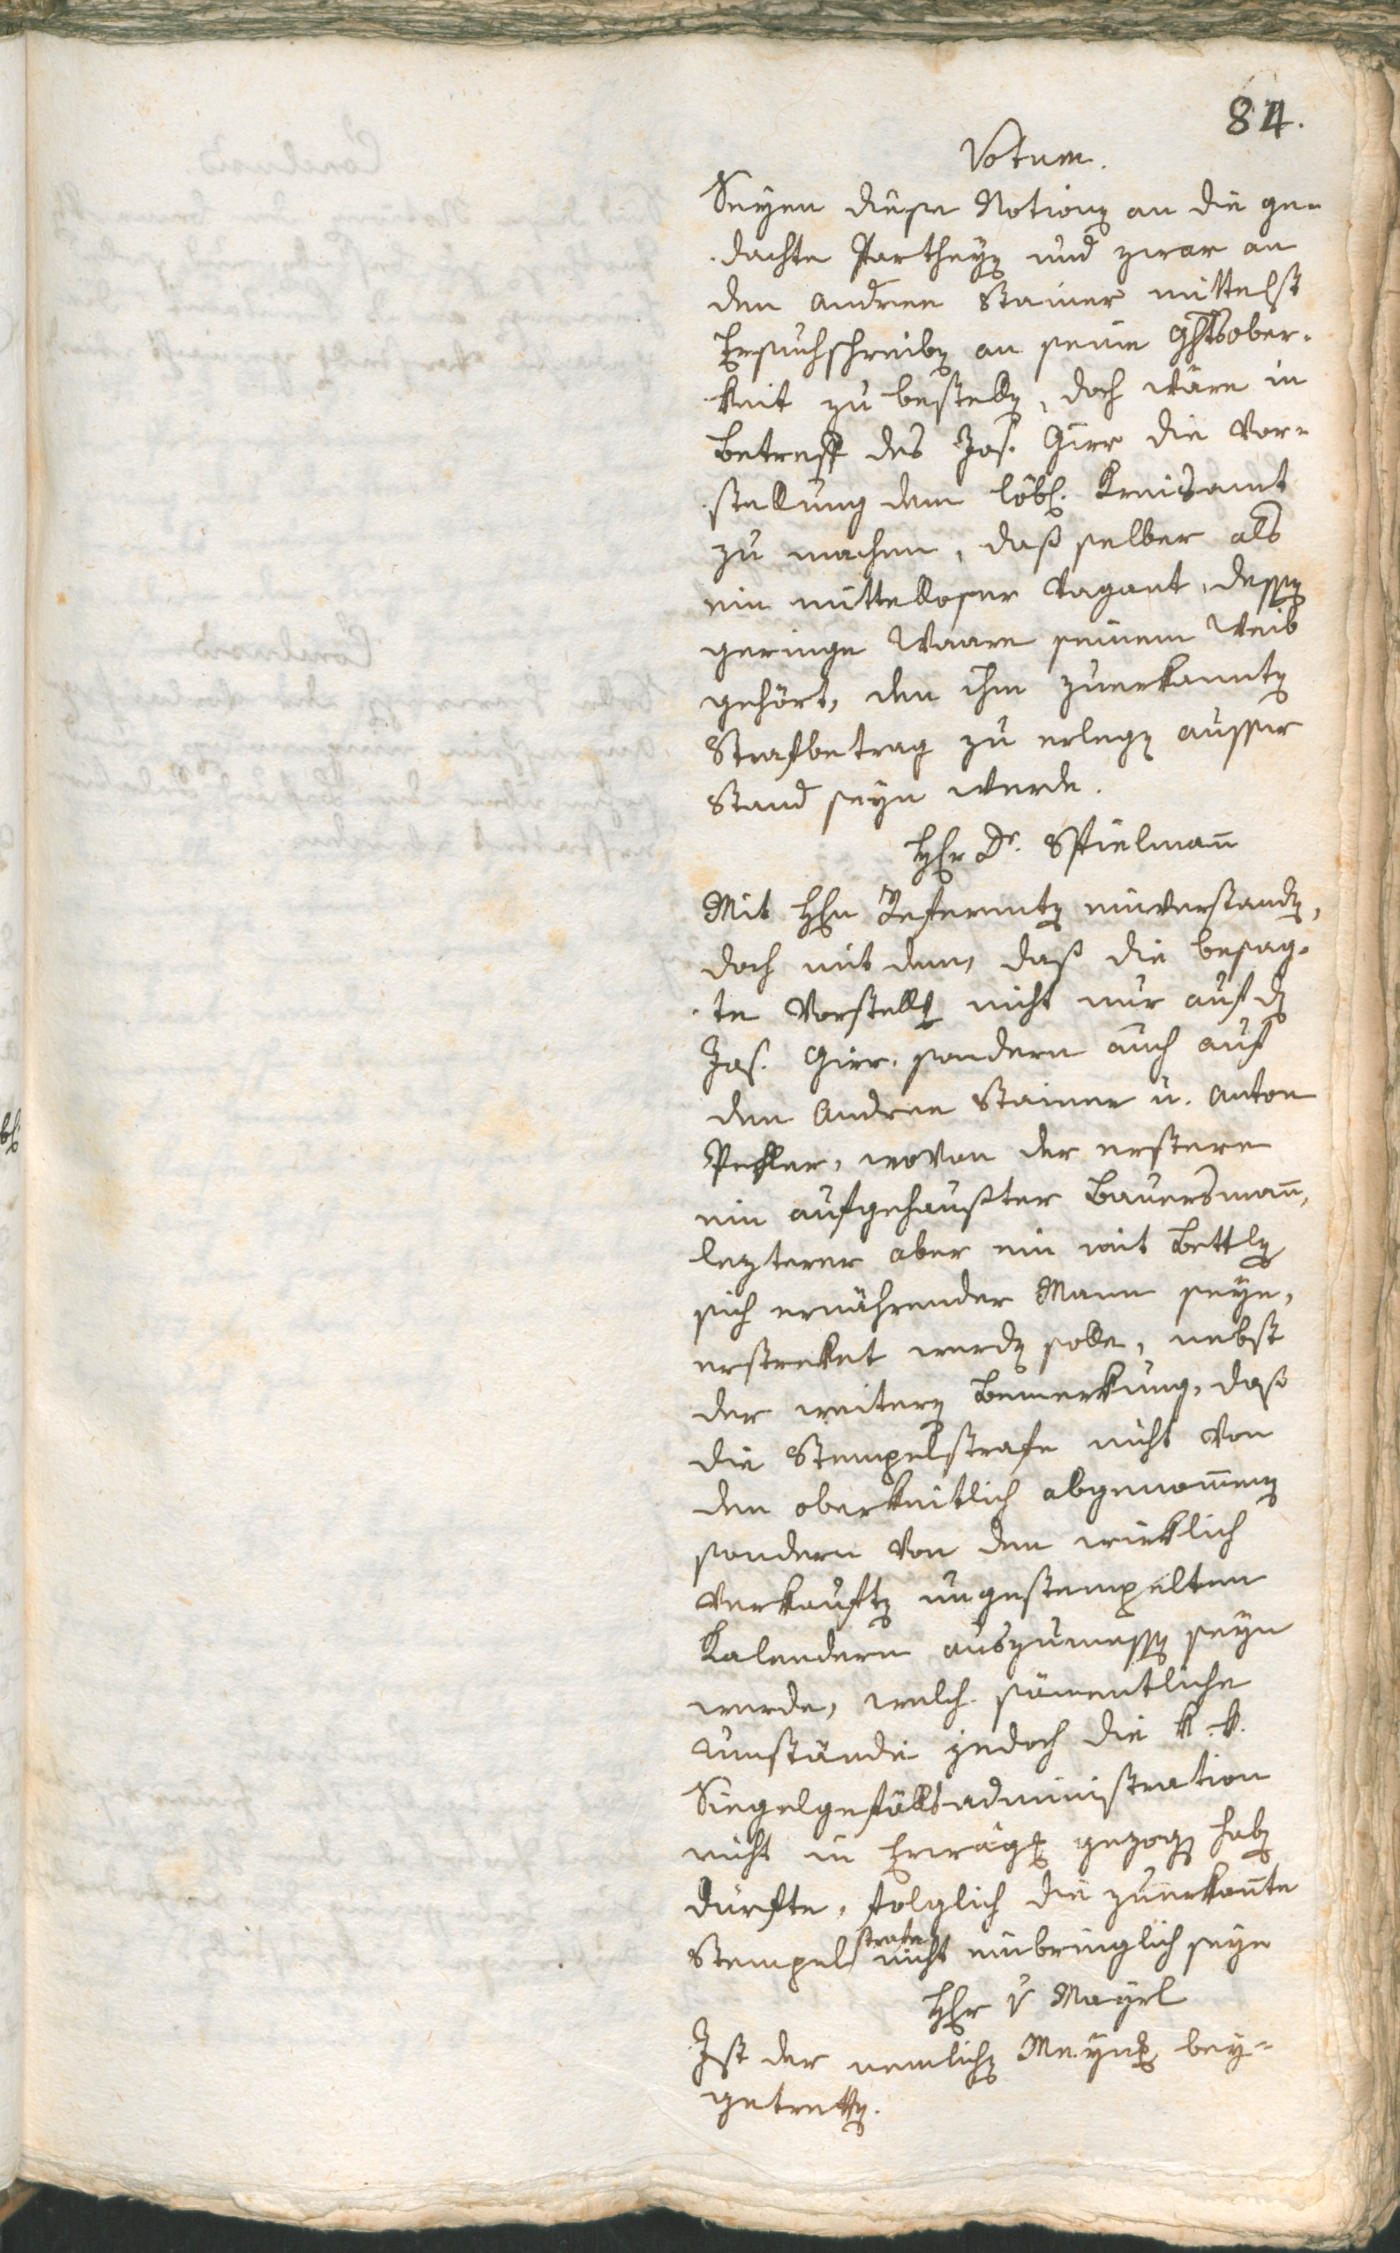 84.
Votum.
Seyen diese Notionen an die ge-
dachte Partheyen und zwar an
den Andree Stainer mittelst
Ersuchschreiben an seine Ghtsober-
keit zu bestellen, doch wäre in
Betreff des Jos. Girr die Vor-
stellung dem löbl. Kreisamt
zu machen, daß selber als
ein mittelloser Vagant, dessen
geringe Waare seinem Weib
gehört, den ihm zuerkannten
Strafbetrag zu erlegen ausser
Stand seyn werde.
Hr Dr. Spielmann
Mit Hrn Referenten einverstanden,
doch mit dem, daß die besag-
te Vorstellung nicht nur auf den
Jos. Girr, sondern auch auf
den Andree Stainer u. Anton
wovon der erstere
ein aufgehaußter Bauersmann,
lezterer aber ein mit Bettlen
sich ernährender Mann seye,
erstreket werden solle, nebst
der weiteren Bemerkung, daß
die Stempelstrafe nicht von
den oberkeitlich abgenommenen
sondern von den wirklich
verkauften ungestempelten
Kalendern auszumessen seyn
werde, welch sämentliche
Umstände jedoch die k. k.
Siegelgefällsadministration
nicht in Erwägung gezogen haben
dürfte, folglich die zuerkannte
Stempelstrafe nicht einbringlich seye
Hr v Mayrl
Ist der nemlichen Meynung bey-
getretten.